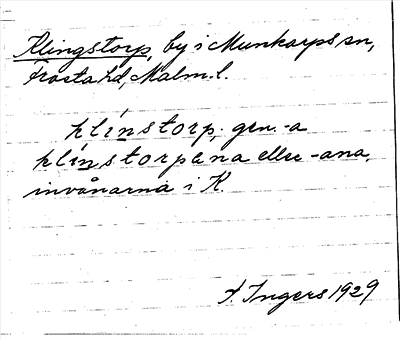 Klingstorp, by i Munkarps sn,
Frosta hd, Malm. l.
klinstorp; gen. -a
klinstorpana eller -ana,
invånarna i K.
I. Ingers 1929